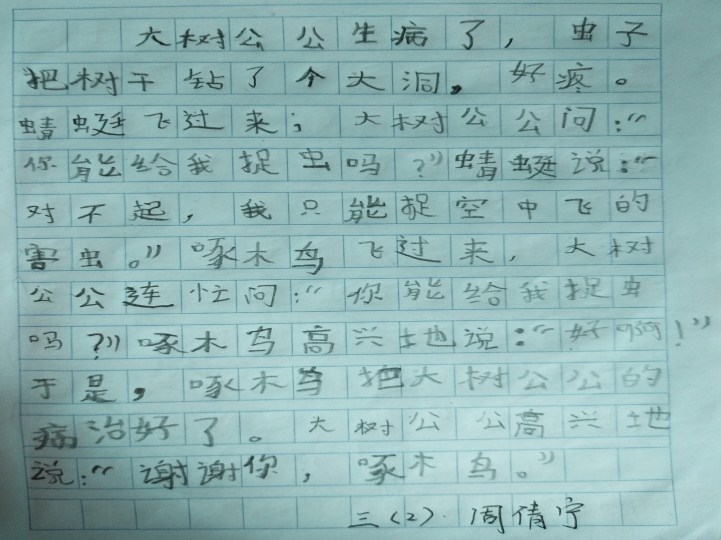 大树公公生病了，虫子
把树干钻了个大洞。好疼。
蜻蜓飞过来；大树公公问：“
你能给我捉虫吗？”蜻蜓说：“
对不起，我只能捉空中飞的
害虫。”啄木鸟飞过来，大树
公公连忙问：“你能给我捉虫
吗？”啄木鸟高兴地说：“好啊！”
于是，啄木鸟把大树公公的
病治好了。大树公公高兴地
说：“谢谢你，啄木鸟。”
三(2) 周倩宁